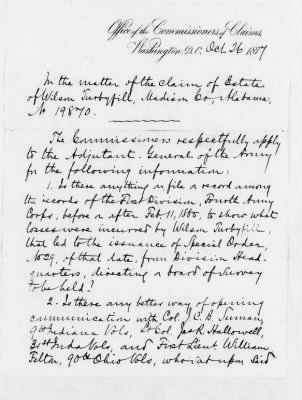 Office of the Commissioners of Claims,
Washington, D.C. Oct. 26 1877
In the matter of the claim of Estate
of Wilson Turbyfill, Madison Co, Alabama,
No 19870.
The Commissioners respectfully apply
to the Adjutant General of the Army
for the following information:
1. Is there anything on file or record among
the records of the First Division, Fourth Army
Corps, before or after Feb. 11, 1865, to show what
losses were incurred by Wilson Turbyfill,
that led to the issuance of Special Order,
No 29, of that date, from Division Head-
quarters, directing a board of survey
to be held?
2. Is there any better way of opening
communication with Col. I. C. B. Suman,
9th Indiana Vols, Lt Col. Jas. R. Hallowell,
31st Inda Vols, and First Lieut. William
Felton, 90th Ohio Vols, who sat upon said